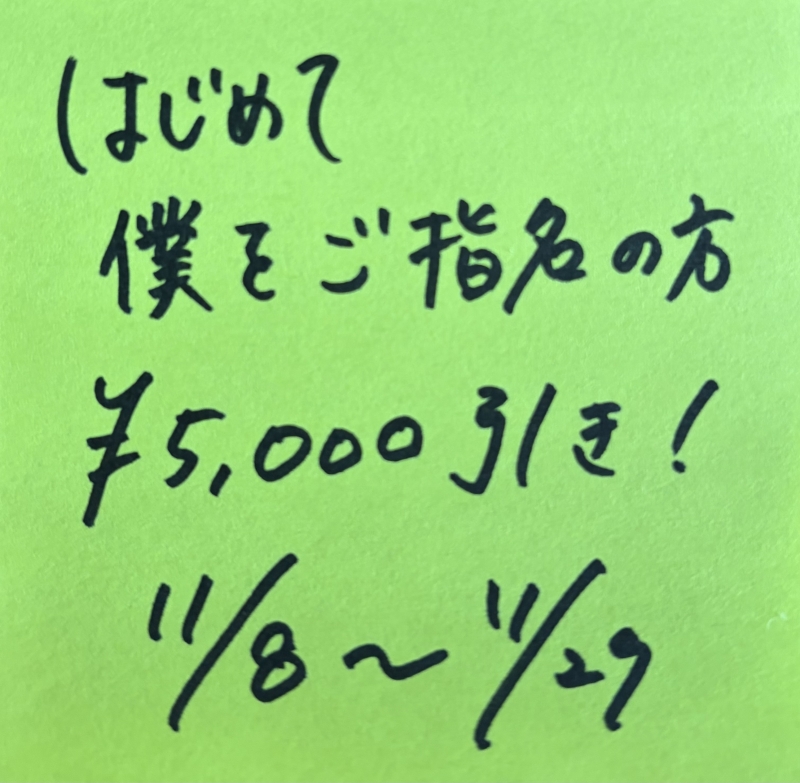 はじめて
僕をご指名の方
¥5,000引き!
11/8〜11/29